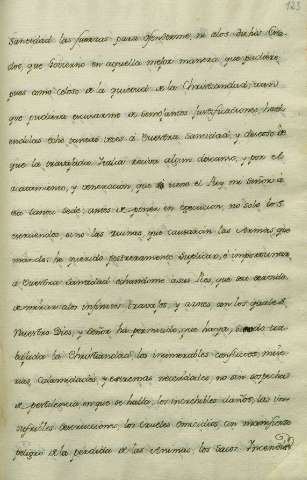 123
Santidad las fuerzas para ofenderme, ni a los dichos Esta-
dos, que Govierno en aquella mejor manera que pudiere,
pues como celoso de la quietud de la Christiandad, aun
que pudiera escusarme de semejantes justificaciones, havi-
endolas hecho tantas veces á Vuestra Santidad, y deseoso de
que la trabajada Italia reciva algun descanso, y por el
acatamiento, y veneracion que tiene el Rey mi Señor á
esa Santa Sede, antes de poner en egecucion, no solo los
 sino las ruinas, que causarán las Armas que
mando: he querido postreramente Suplicar, é importunar
á Vuestra Santidad echandome á sus Pies, que sea servido
de mirar los infinitos trabajos, y con los quales
Nuestro Dios, y Señor ha permitido, que haya sido tra-
bajada la Christiandad, los innumerables conflictos, mise-
rias, Calamidades, y extremas necesidades, no sin sospecha
de pestilencia, en que se halla, los increhibles daños, las in-
sufribles destrucciones, los crueles omicidios, con manifiesto
peligro de la perdida de las Animas, los Sacos, Incendios